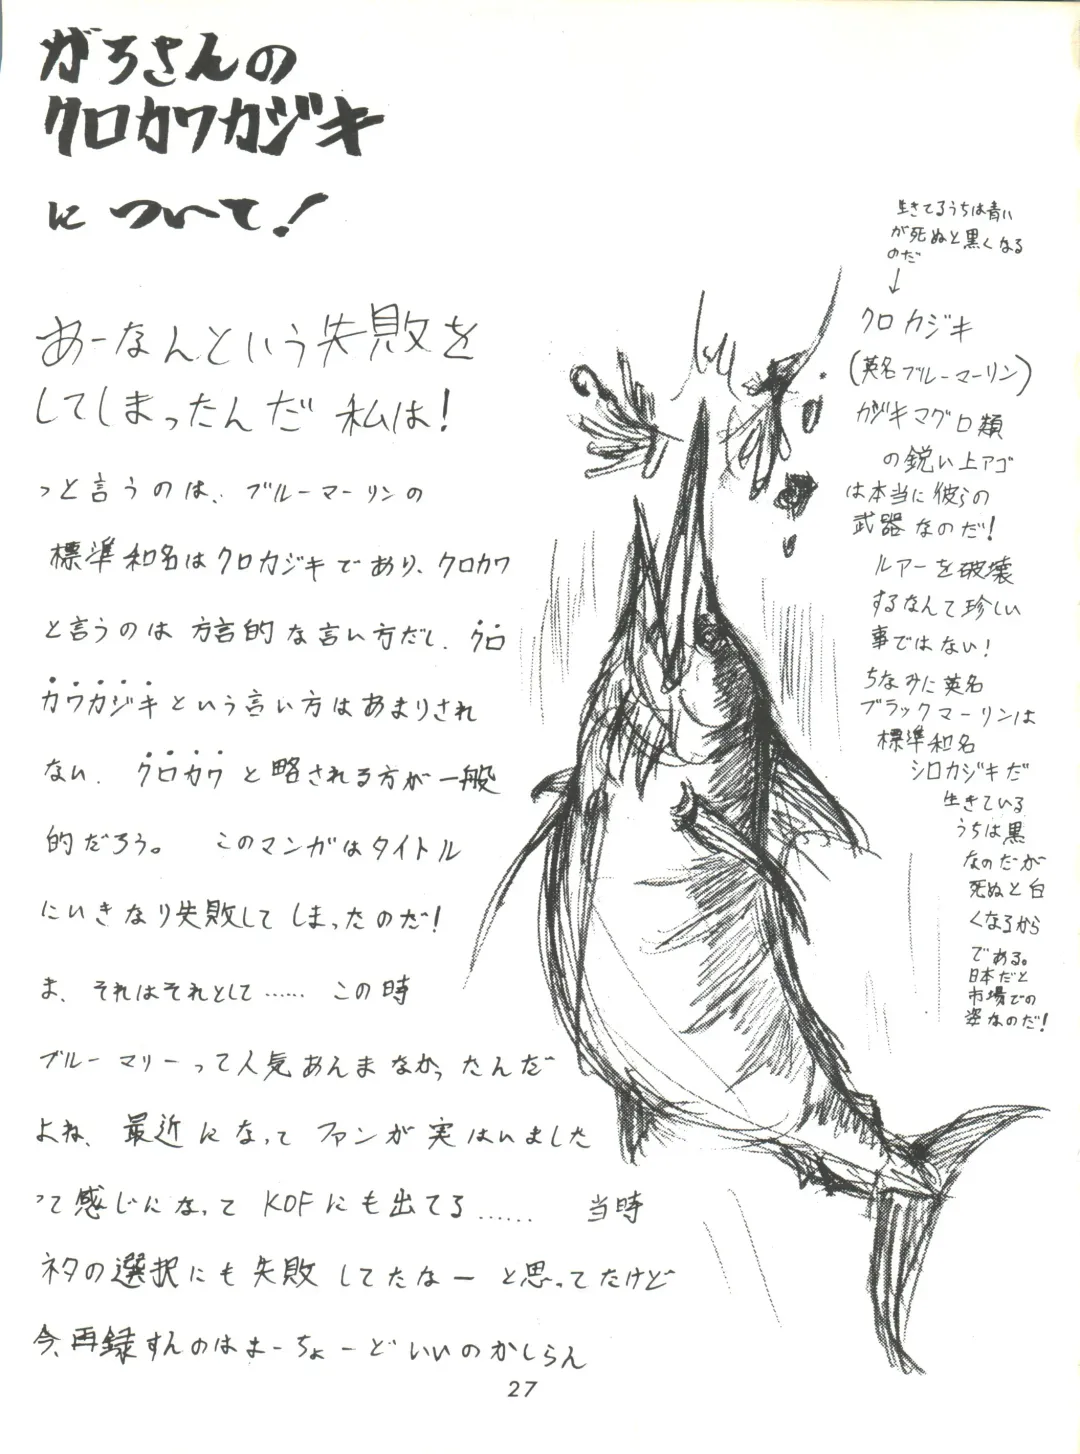 がろさんの
クロカワカジキ
について!
あーなんという失敗を
してしまったんだ 私は!
っと言うのは、ブルーマーリンの
標準和名はクロカジキであり、クロカワ
と言うのは方言的な言い方だし、クロ
カワカジキという言い方はあまりされ
ない、クロカワと略される方が一般
的だろう。 このマンガはタイトル
にいきなり失敗してしまったのだ!
ま、それはそれとして…… この時
ブルーマリーって人気あんまなかったんだ
よね、最近になってファンが実はいました
って感じになって KOFにも出てる…… 当時
ネタの選択にも失敗してたなーと思ってたけど
今、再録すんのはまーちょーどいいのかしらん
生きてるうちは青い
が死ぬと黒くなる
のだ
↓
クロカジキ
(英名ブルーマーリン)
カジキマグロ類
の鋭い上アゴ
は本当に彼らの
武器なのだ!
ルアーを破壊
するなんて珍しい
事ではない!
ちなみに英名
ブラックマーリンは
標準和名
シロカジキだ
生きている
うちは黒
なのだが
死ぬと白
くなるから
である。
日本だと
市場での
姿なのだ!
27